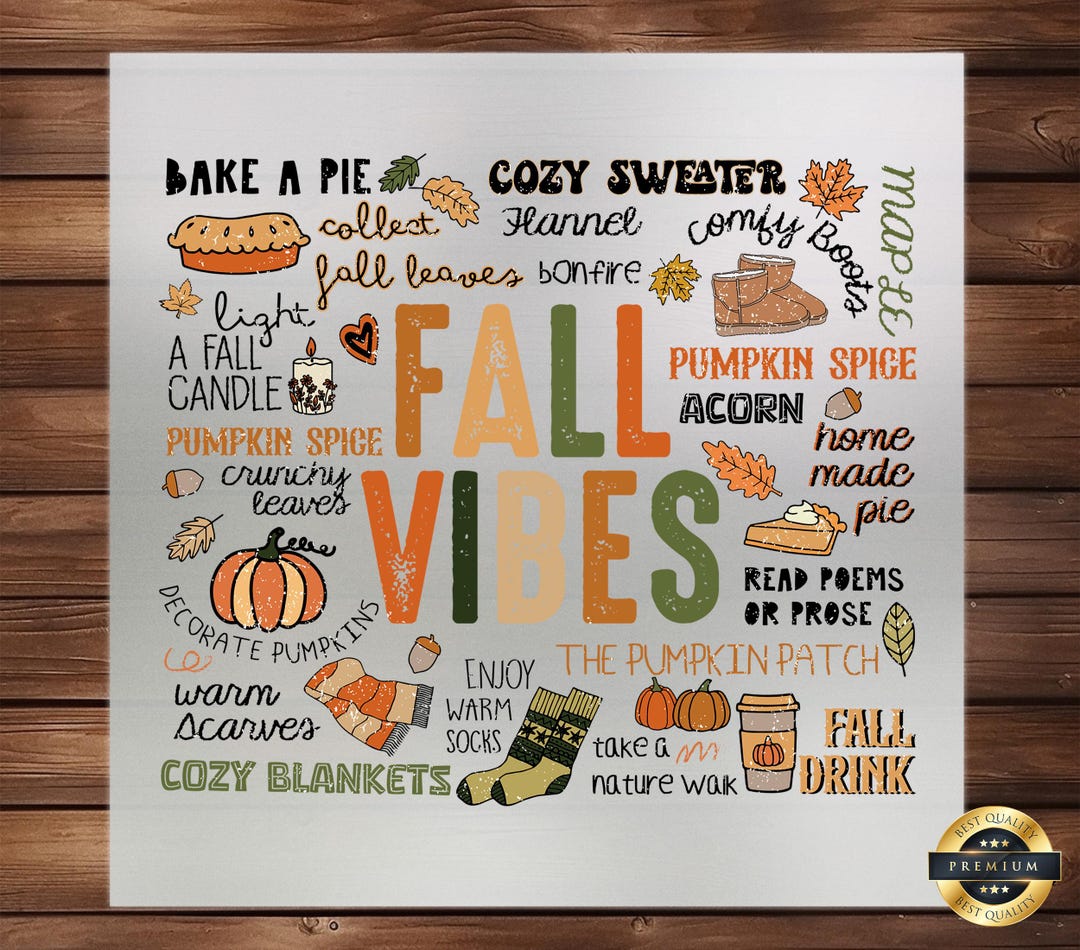 BAKE A PIE
COZY SWEATER
collect
fall leaves
Flannel
bonfire
comfy Boots
maple
light
A FALL
CANDLE
FALL
VIBES
PUMPKIN SPICE
ACORN
home
made
pie
PUMPKIN SPICE
crunchy
leaves
READ POEMS
OR PROSE
DECORATE PUMPKINS
THE PUMPKIN PATCH
warm
scarves
ENJOY
WARM
SOCKS
take a
nature walk
FALL
DRINK
COZY BLANKETS
BEST QUALITY
PREMIUM
BEST QUALITY